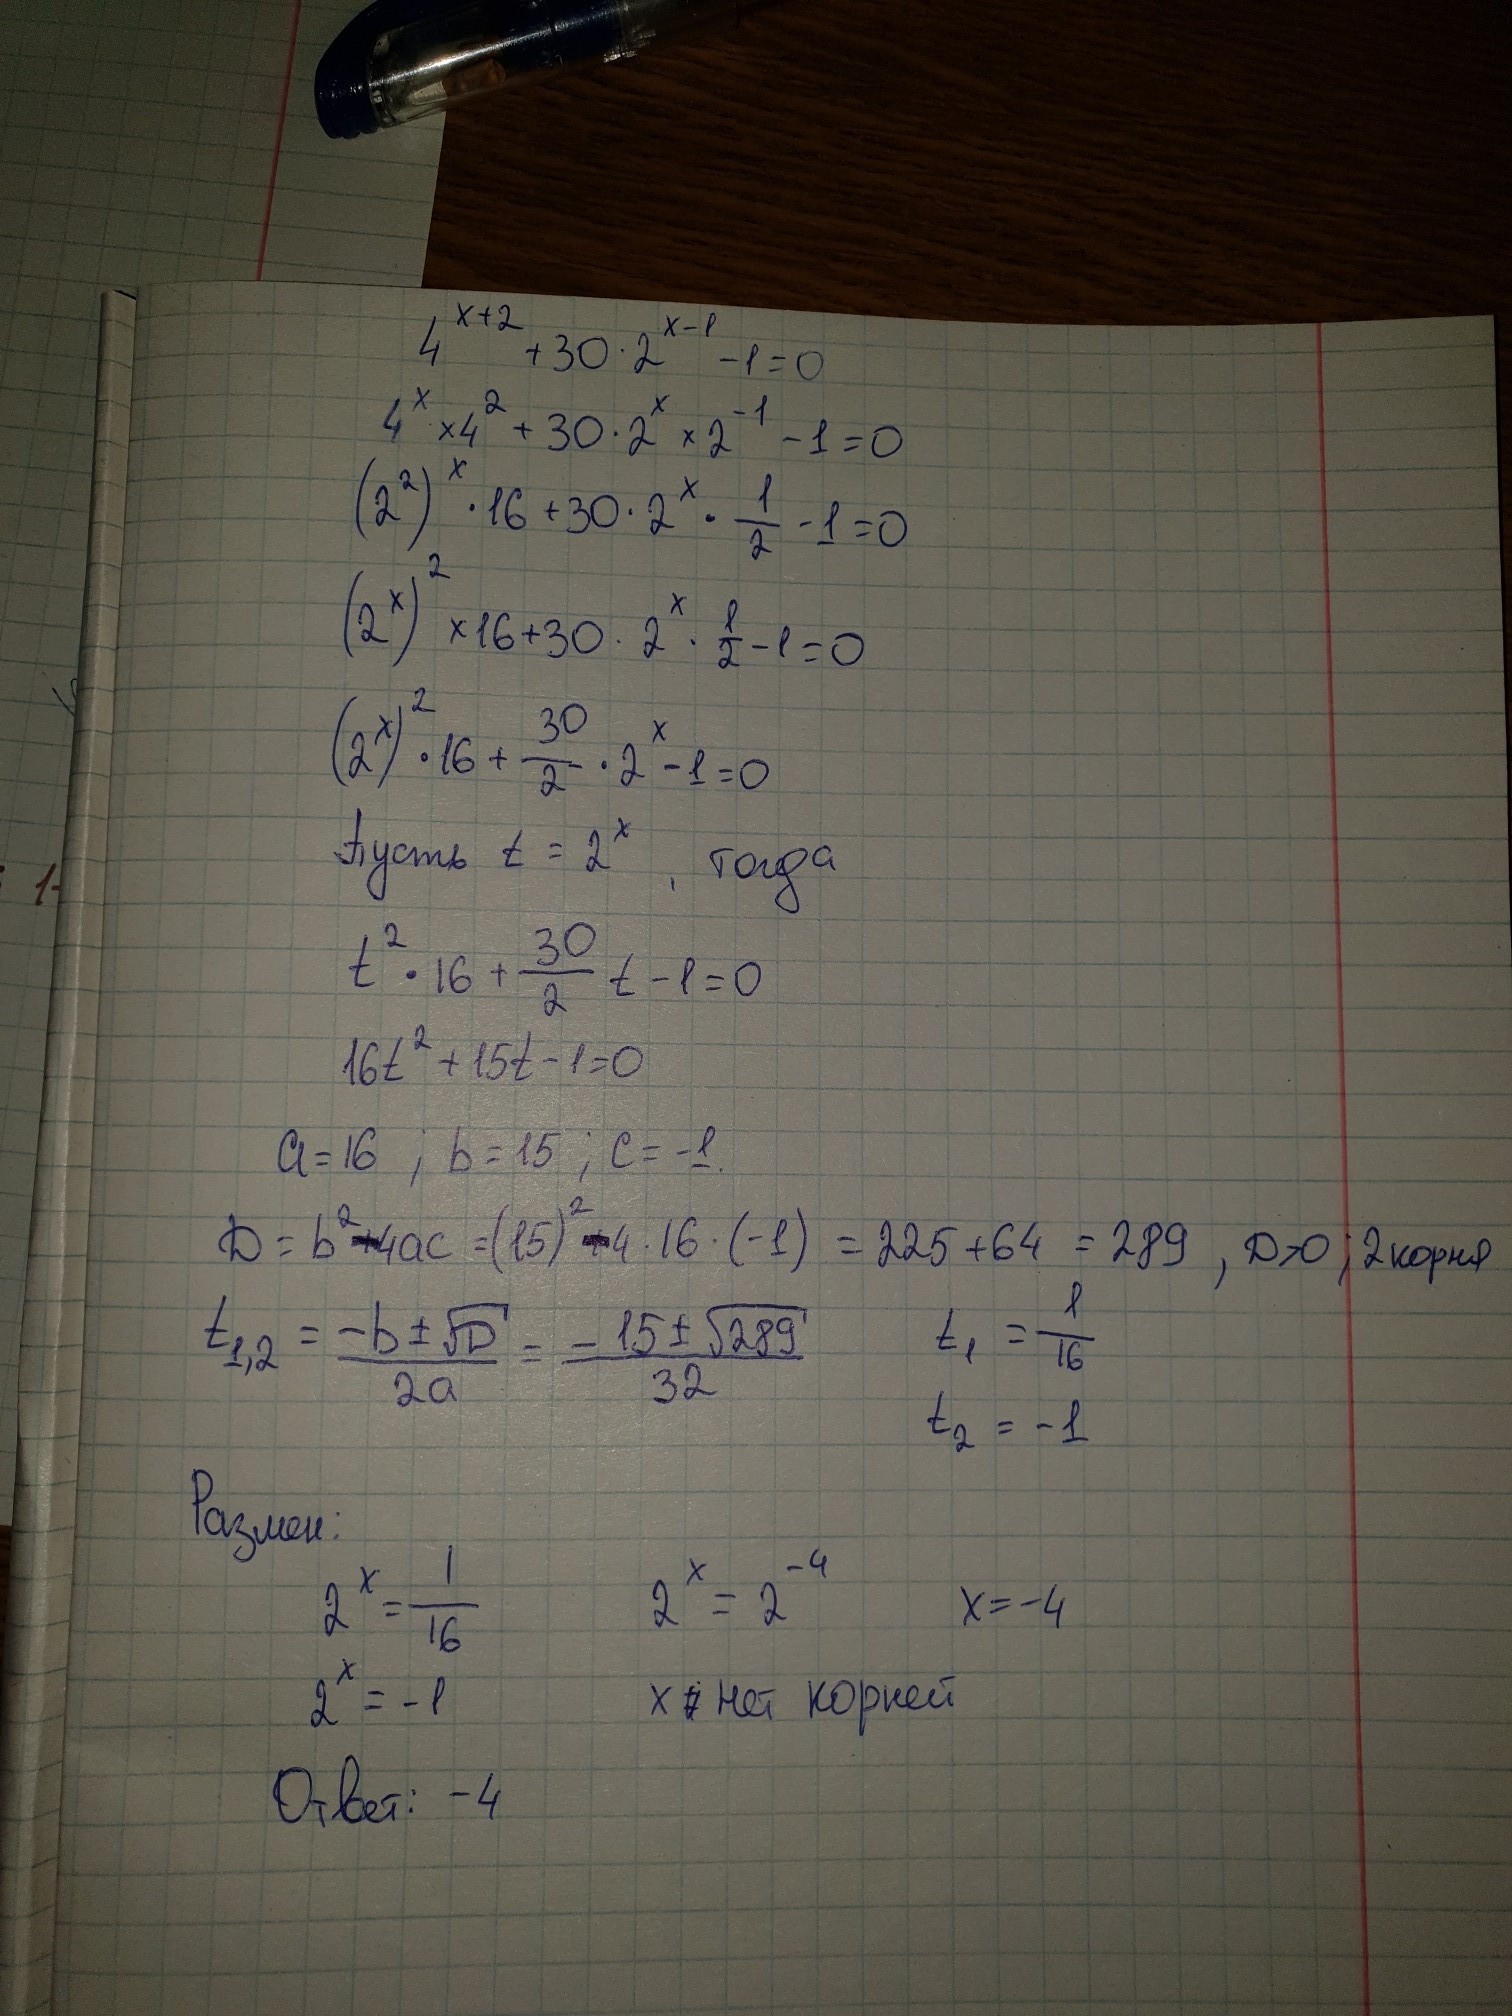 4^{x+2} + 30 · 2^{x-1} - 1 = 0
4^x × 4^2 + 30 · 2^x × 2^{-1} - 1 = 0
(2^2)^x · 16 + 30 · 2^x · \frac{1}{2} - 1 = 0
(2^x)^2 × 16 + 30 · 2^x · \frac{1}{2} - 1 = 0
(2^x)^2 · 16 + \frac{30}{2} · 2^x - 1 = 0
Пусть t = 2^x, тогда
t^2 · 16 + \frac{30}{2} t - 1 = 0
16t^2 + 15t - 1 = 0
a = 16 ; b = 15 ; c = -1.
D = b^2 - 4ac = (15)^2 - 4 · 16 · (-1) = 225 + 64 = 289, D>0 ; 2 корня
t_{1,2} = \frac{-b ± √D}{2a} = \frac{-15 ± √289}{32} t_1 = \frac{1}{16}
t_2 = -1
Размен:
2^x = \frac{1}{16} 2^x = 2^{-4} x = -4
2^x = -1 x нет корней
Ответ: -4